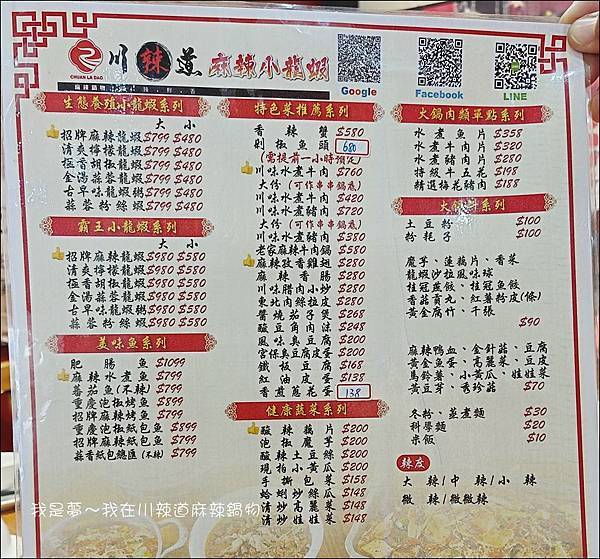 川辣道
CHUAN LA DAO
麻辣小龍蝦
Google
Facebook
LINE
生態養殖小龍蝦系列
大 小
招牌麻辣龍蝦$799 $480
清爽檸檬龍蝦$799 $480
極香胡椒龍蝦$799 $480
金湯蒜蓉龍蝦$799 $480
古早味龍蝦粥$799 $480
蒜蓉粉絲蝦$799 $480
霸王小龍蝦系列
大 小
招牌麻辣龍蝦$980 $580
清爽檸檬龍蝦$980 $580
極香胡椒龍蝦$980 $580
金湯蒜蓉龍蝦$980 $580
古早味龍蝦粥$980 $580
蒜蓉粉絲蝦$980 $580
美味魚系列
肥腸魚 $1099
麻辣水煮魚 $799
番茄魚(不辣) $799
重慶泡椒烤魚 $899
招牌麻辣烤魚 $899
重慶泡椒紙包魚 $899
招牌麻辣紙包魚 $899
蒜香紙包總匯(不辣) $799
特色菜推薦系列
香辣蟹 $580
剁椒魚頭 680
(需提前一小時預定)
川味水煮牛肉 $760
大份(可作串串鍋底)
川味水煮牛肉 $420
川味水煮豬肉 $720
大份(可作串串鍋底)
川味水煮豬肉 $380
老家麻辣牛肉鍋 $580
麻辣孜香雞翅 $280
麻辣香腸 $280
川味腊肉小炒 $280
東北肉絲拉皮 $280
醬燒茄子煲 $268
酸豆角肉沫 $248
風味臭豆腐 $200
宮保臭豆腐皮蛋 $200
鐵板豆腐 $168
紅油皮蛋 $138
香煎蔥花蛋 138
健康蔬菜系列
酸辣藕片 $200
泡椒魔芋 $200
酸辣土豆絲 $200
現拍小黃瓜 $200
手撕包菜 $158
蛤蜊炒絲瓜 $148
清炒高麗菜 $148
清炒娃娃菜 $148
火鍋肉類單點系列
水煮魚片 $358
水煮牛肉片 $320
水煮豬肉片 $280
特級牛五花 $198
精選梅花豬肉 $188
火鍋料系列
土豆粉 $100
粉耗子 $100
魔芋、蓮藕片、香菜
龍蝦沙拉風味球
桂冠燕餃、桂冠魚餃
香菇貢丸、紅薯粉皮(條)
黃金腐竹、千張
$90
麻辣鴨血、金針菇、豆腐
黃金魚蛋、高麗菜、豆皮
馬鈴薯、小黃瓜、娃娃菜
黃豆芽、秀珍菇 $70
冬粉、蒸煮麵 $30
科學麵 $20
米飯 $10
辣度
大辣/中辣/小辣
微辣/微微辣
我是夢～我在川辣道麻辣鍋物